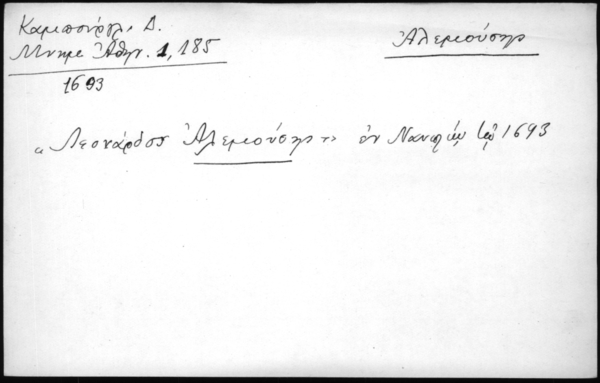 Καμπούρογλ, Δ.
Μνημ Ἀθην. 1, 185
Ἀλεμούσης
1693
"Λεονάρδος Ἀλεμούσης" ἐν Ναυπλίῳ τῷ 1693